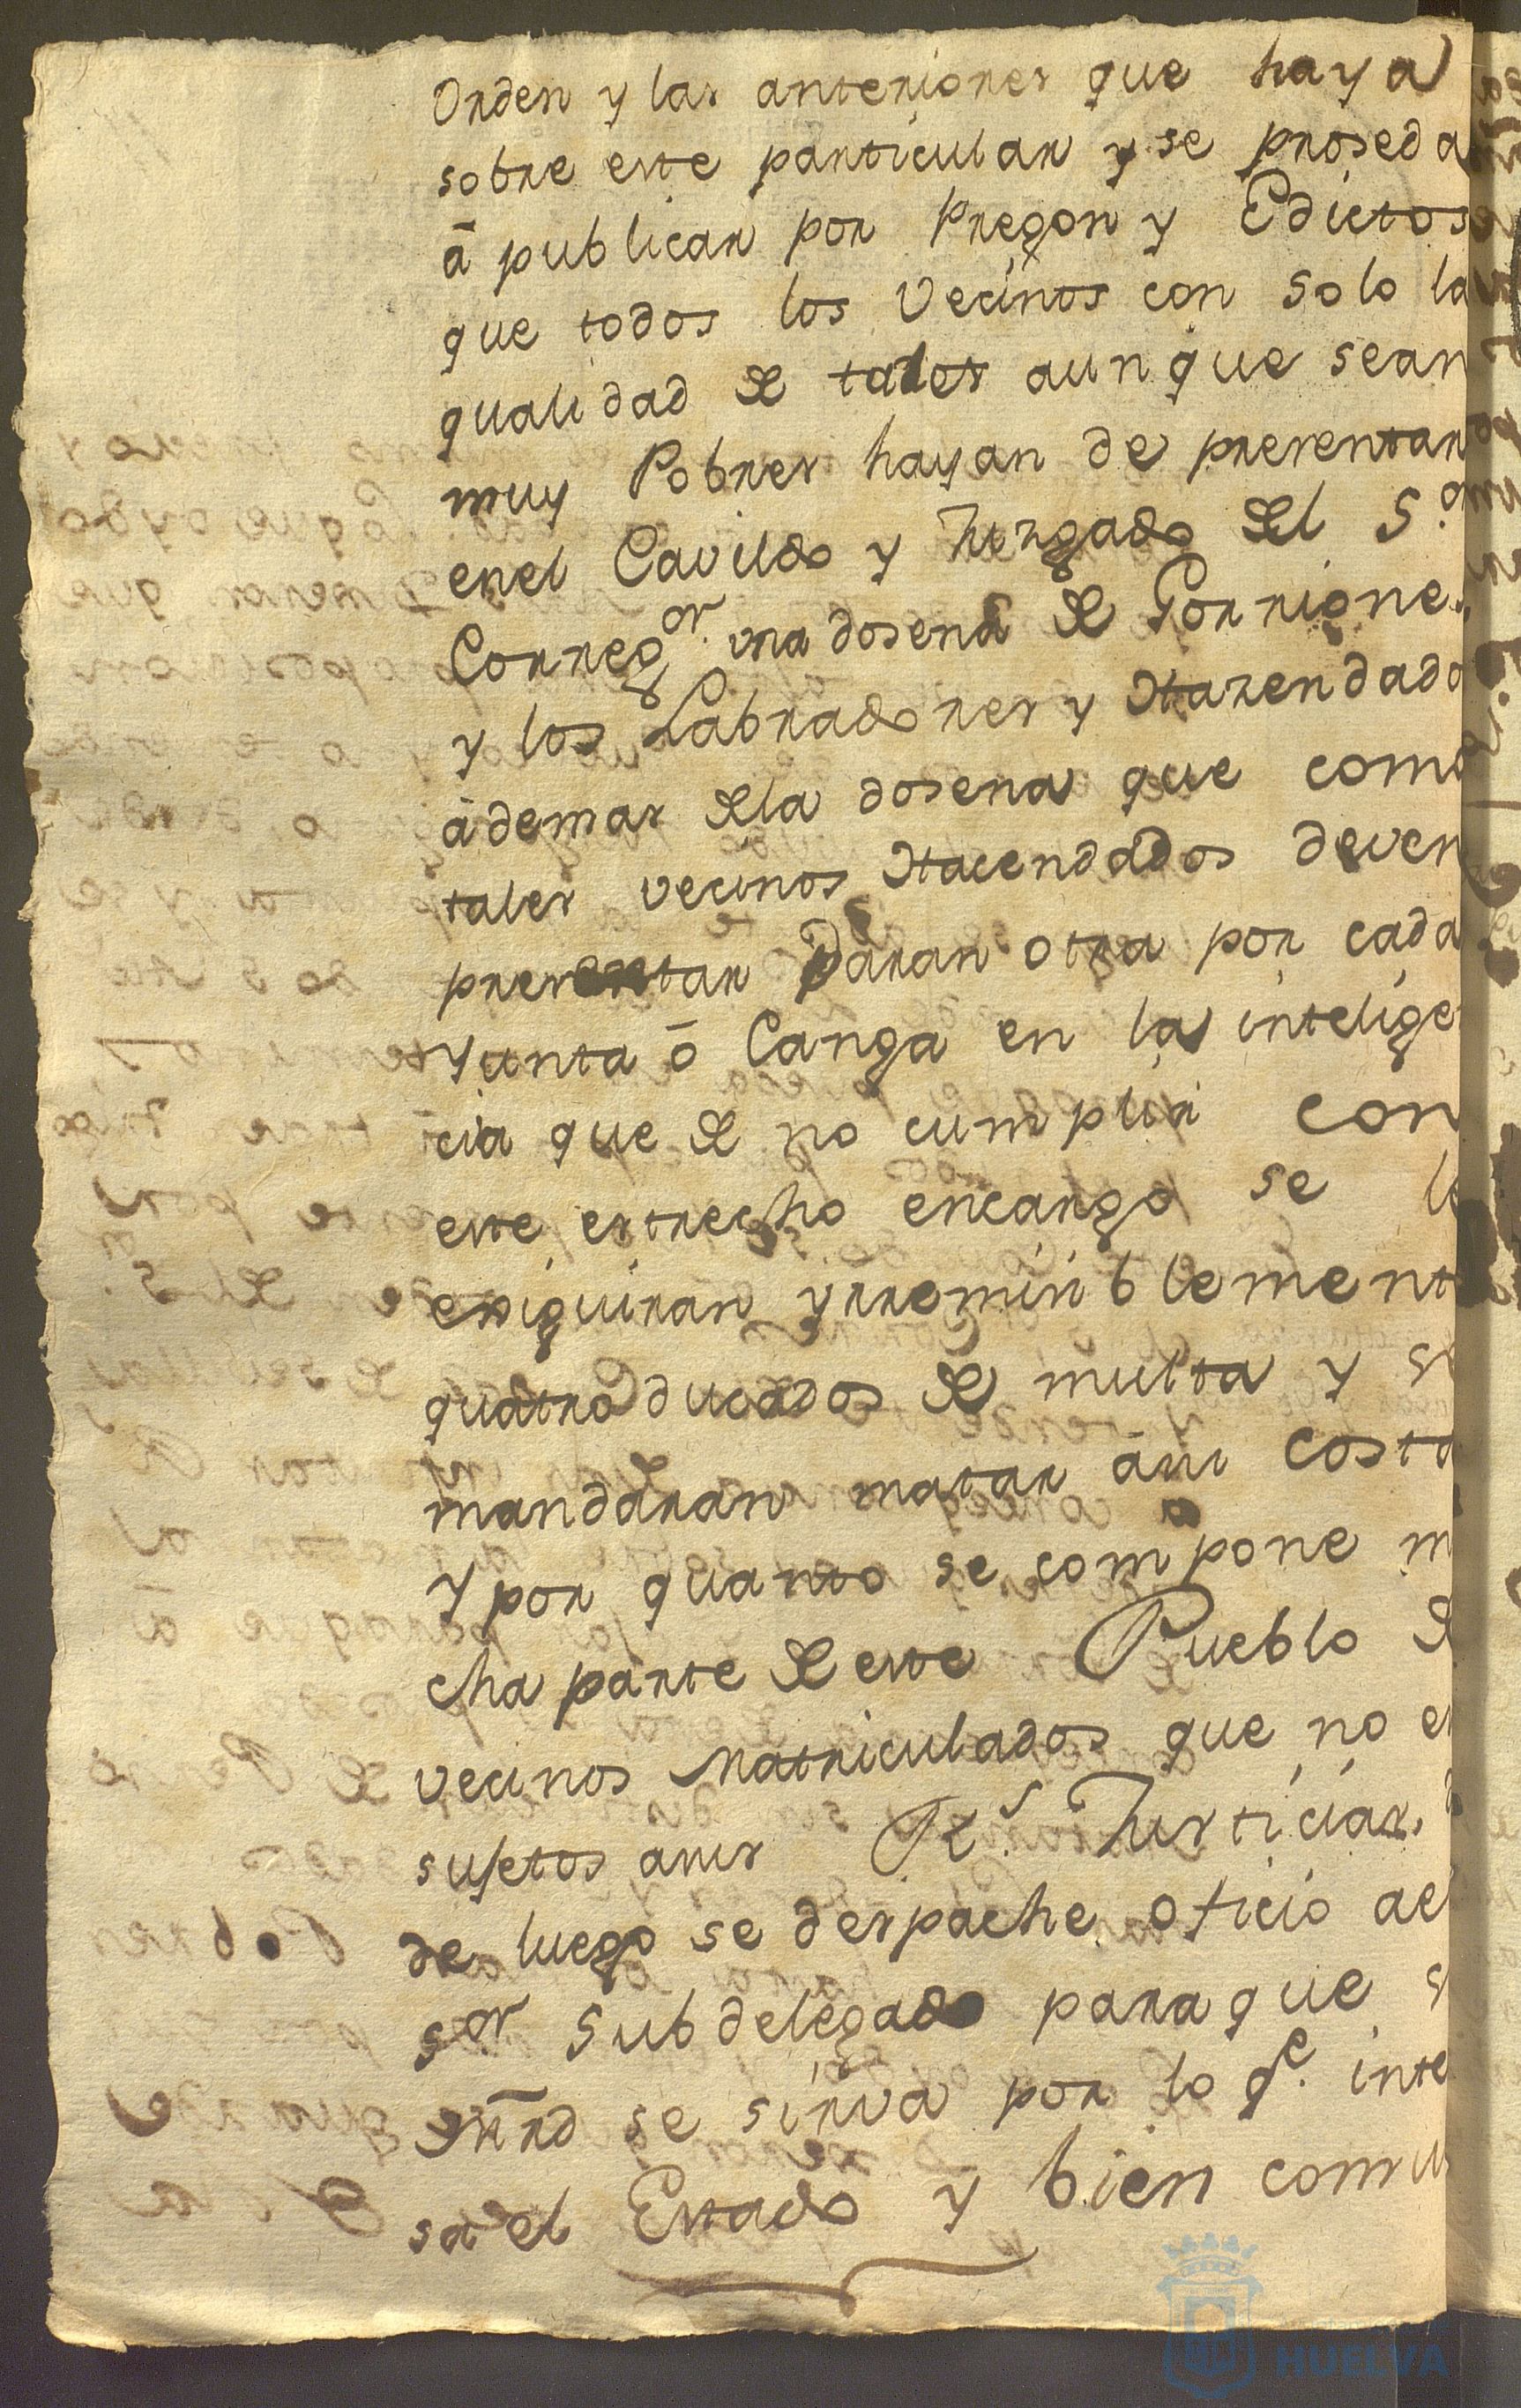 Orden y las anteriores que haya
sobre este particular y se proseda
á publicar por Pregon y Edictos
que todos los Vecinos con solo la
qualidad de tales aunque sean
muy Pobres hayan de presentar
enel Cavildo y Juzgado del S.or
Correg.or una dosena de Gorriones
y los Labradores y Hazendado
ádemas dela dosena que como
tales vecinos Hacendados deven
presentar daran otra por cada
Yunta ó Canga en la intelige
cia que de no cumplir con
este estrecho encargo se le
exiguiran yrremisiblement
quatro ducados de multa y se
mandaran matar ásu costa
Y por quanto se compone m
cha parte de este Pueblo de
vecinos Matriculados que no es
sujetos asus R.s Justicias, d
de luego se despache oficio al
s.or Subdelegado para que s
Mrd se sirva por lo q.e inte
sa el Estado y bien comu
HUELVA